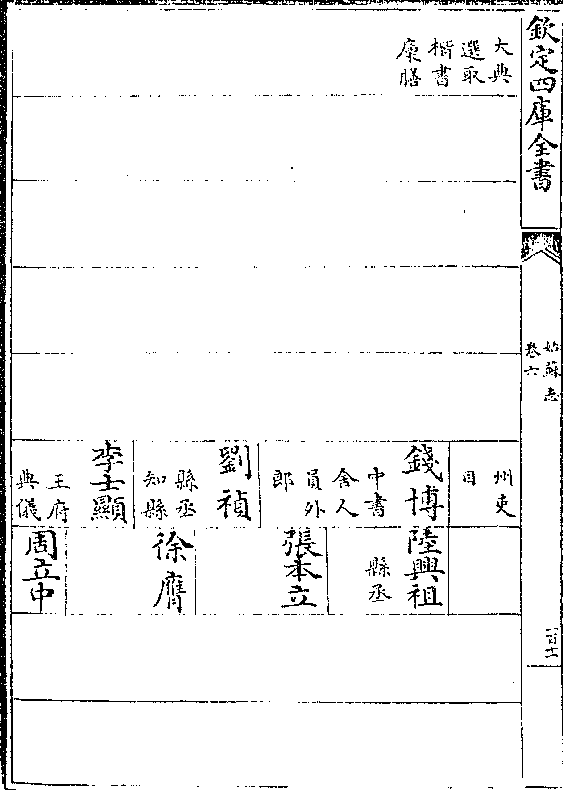 欽定四庫全書
姑蘇志
卷六
百十一
大典
選取
楷書
廩膳
州吏
目
錢博
中書
舍人
員外
郎
劉禎
縣丞
知縣
李士顯
王府
典儀
陸興祖
縣丞
張本立
徐膺
周立中